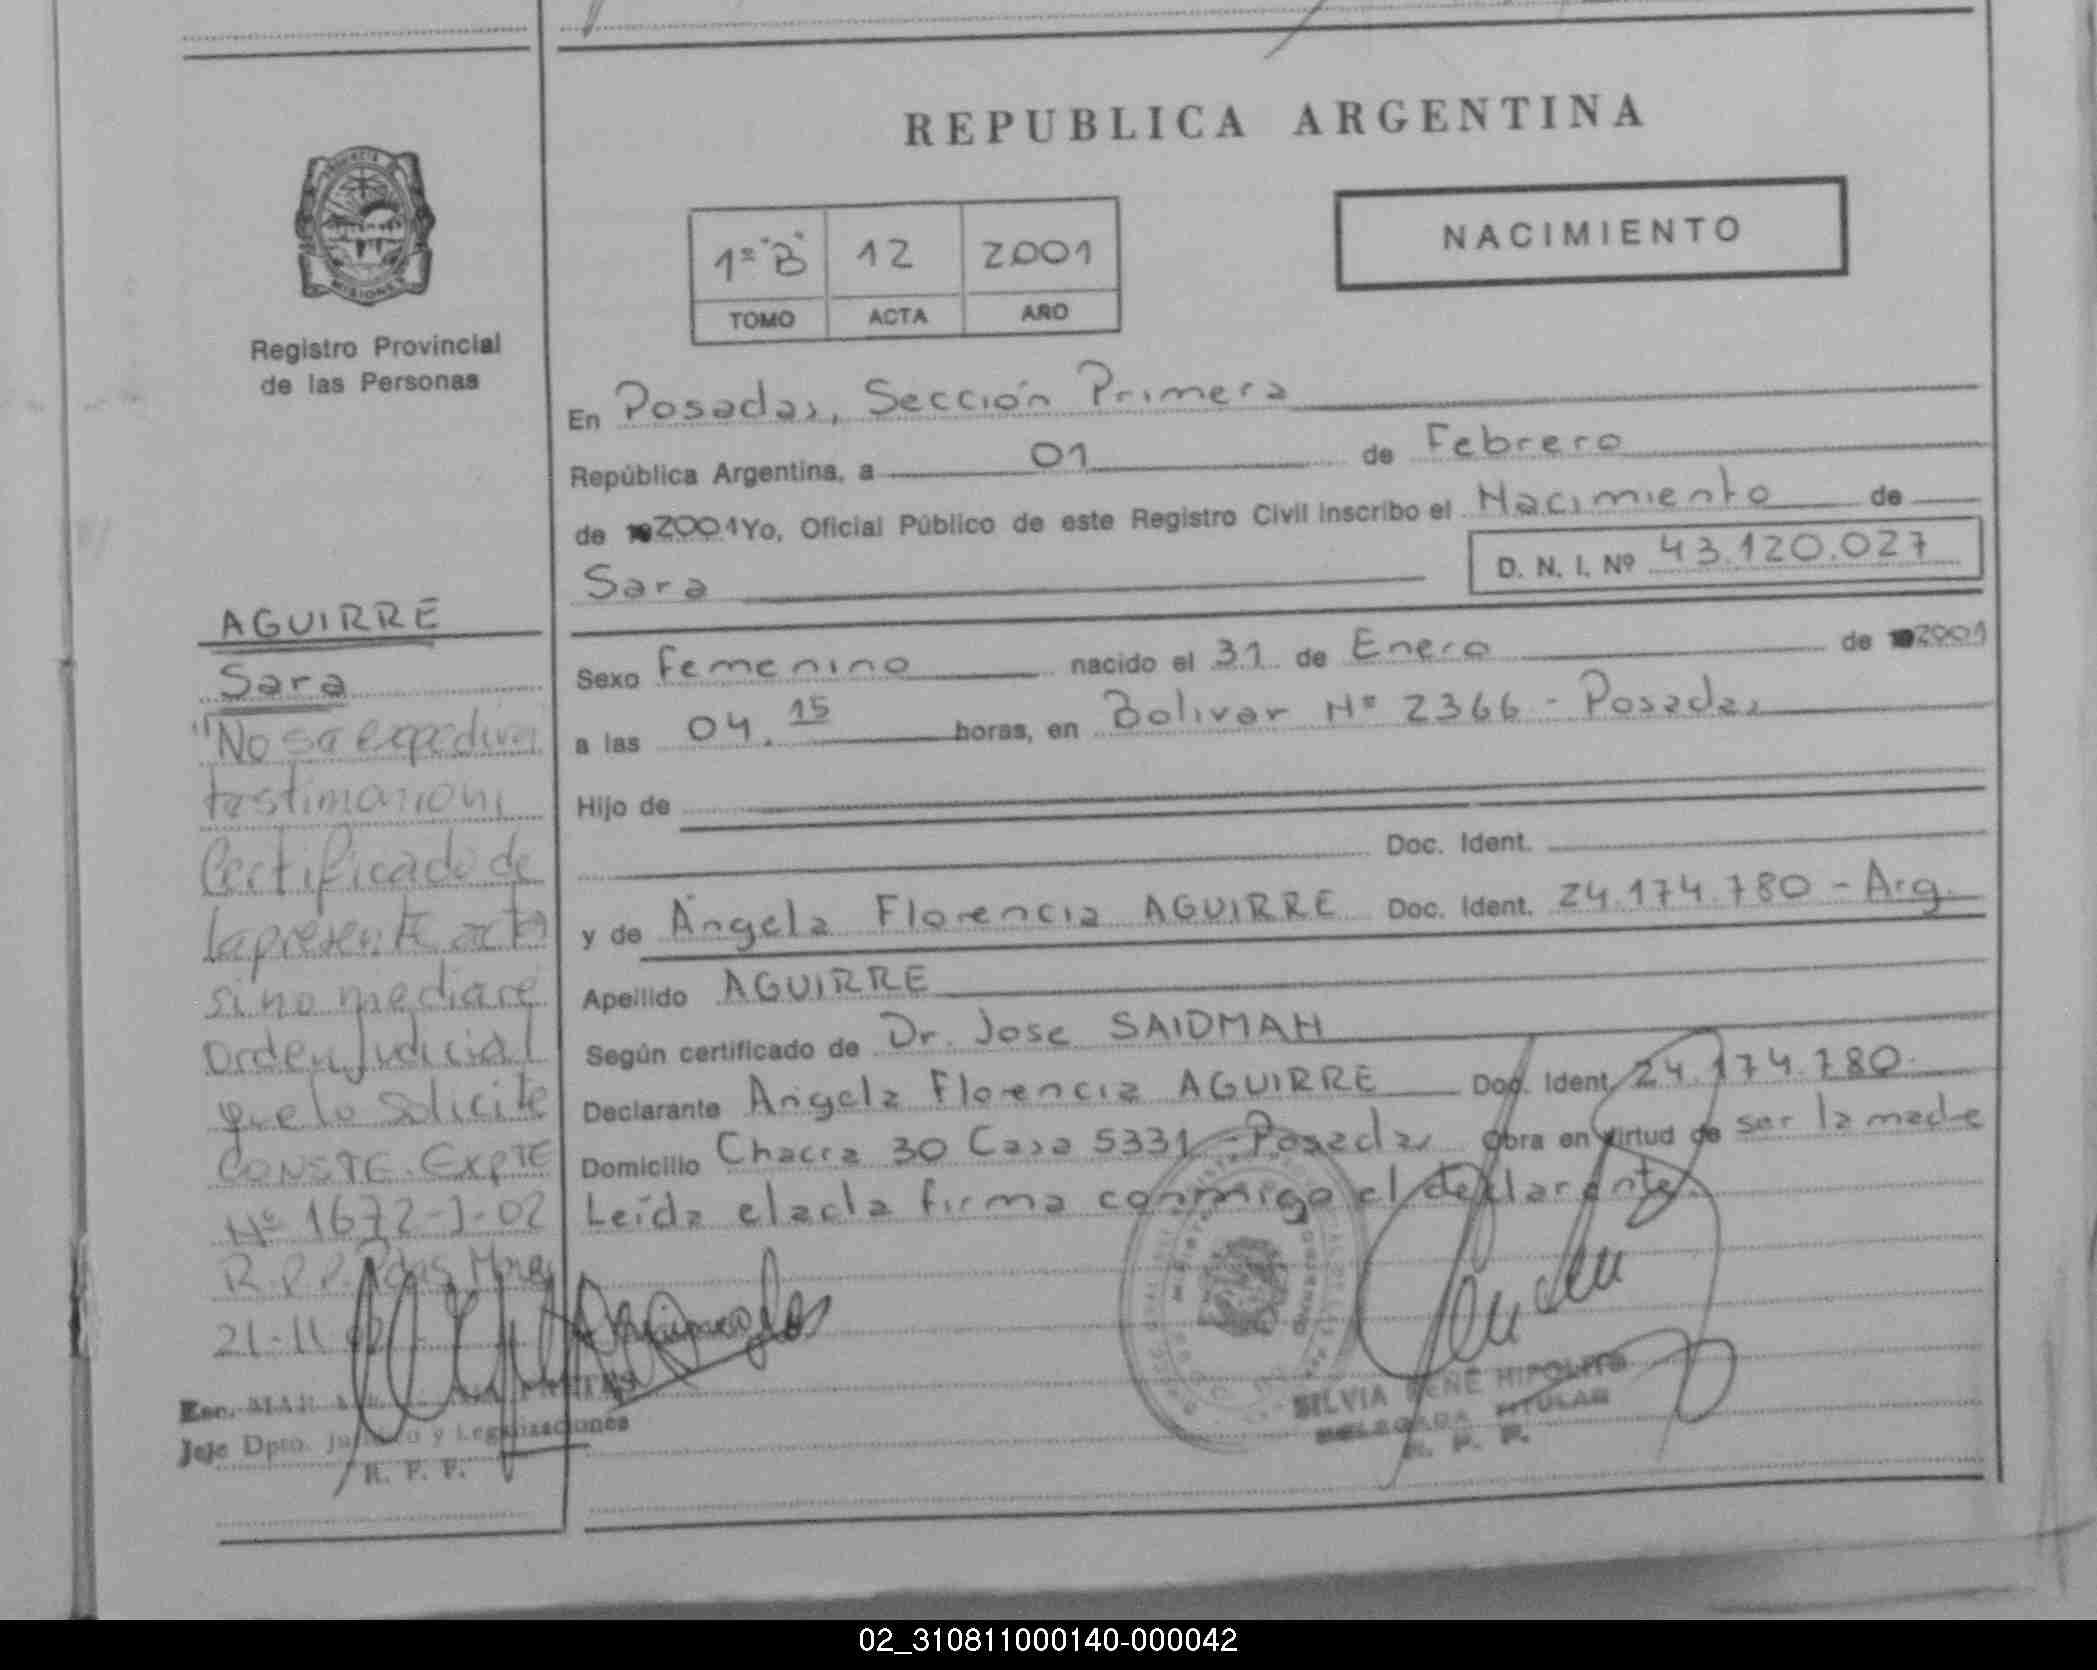 REPUBLICA ARGENTINA
PROVINCIA
MISIONES
Registro Provincial
de las Personas
1º "B" 12 2001
TOMO ACTA AÑO
NACIMIENTO
En Posadas, Sección Primera
República Argentina, a 01 de Febrero
de 2001 Yo, Oficial Público de este Registro Civil inscribo el Nacimiento de
Sara D. N. I. Nº 43.120.027
Sexo Femenino nacido el 31 de Enero de 2001
a las 04.15 horas, en Bolivar Nº 2366 - Posadas
Hijo de
Doc. Ident.
y de Angela Florencia AGUIRRE Doc. Ident. 24.174.780 - Arg.
Apellido AGUIRRE
Según certificado de Dr. Jose SAIDMAN
Declarante Angela Florencia AGUIRRE Doc. Ident. 24.174.780.
Domicilio Chacra 30 Casa 5331 - Posadas Obra en virtud de ser la madre
Leída el acta firma conmigo el declarante.
SILVIA RENE HIPOLITO
DELEGADA TITULAR
R. P. P.
AGUIRRE
Sara
"No se expedirá
testimonion
Certificado de
la presente acta
si no mediare
Orden Judicial
que lo solicite
CONSTE. EXPTE
Nº 1672-J-02
R.P.P. Pdas Mnes
21-11
Esc.
Jefe Dpto. Jurídico y Legalizaciones
R. P. P.
02_310811000140-000042